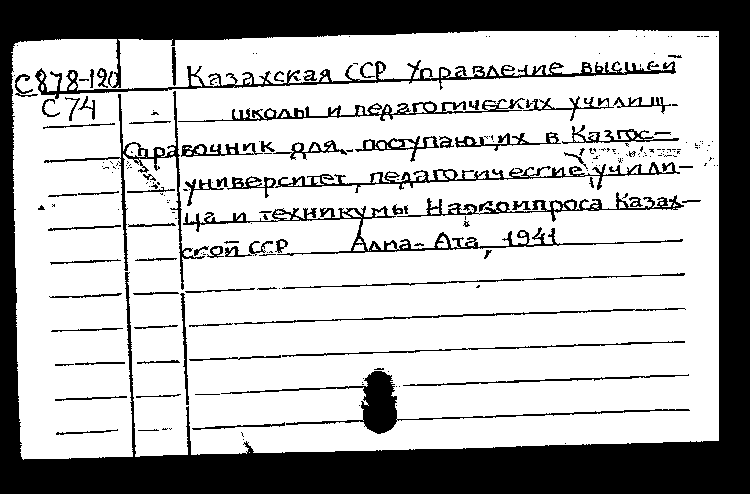 С878-120 Казахская ССР Управление высшей
С74 школы и педагогических училищ
Справочник для поступающих в Казгос-
университет, педагогические учили-
ща и техникумы Наркомпроса Казах-
ской ССР. Алма-Ата, 1941